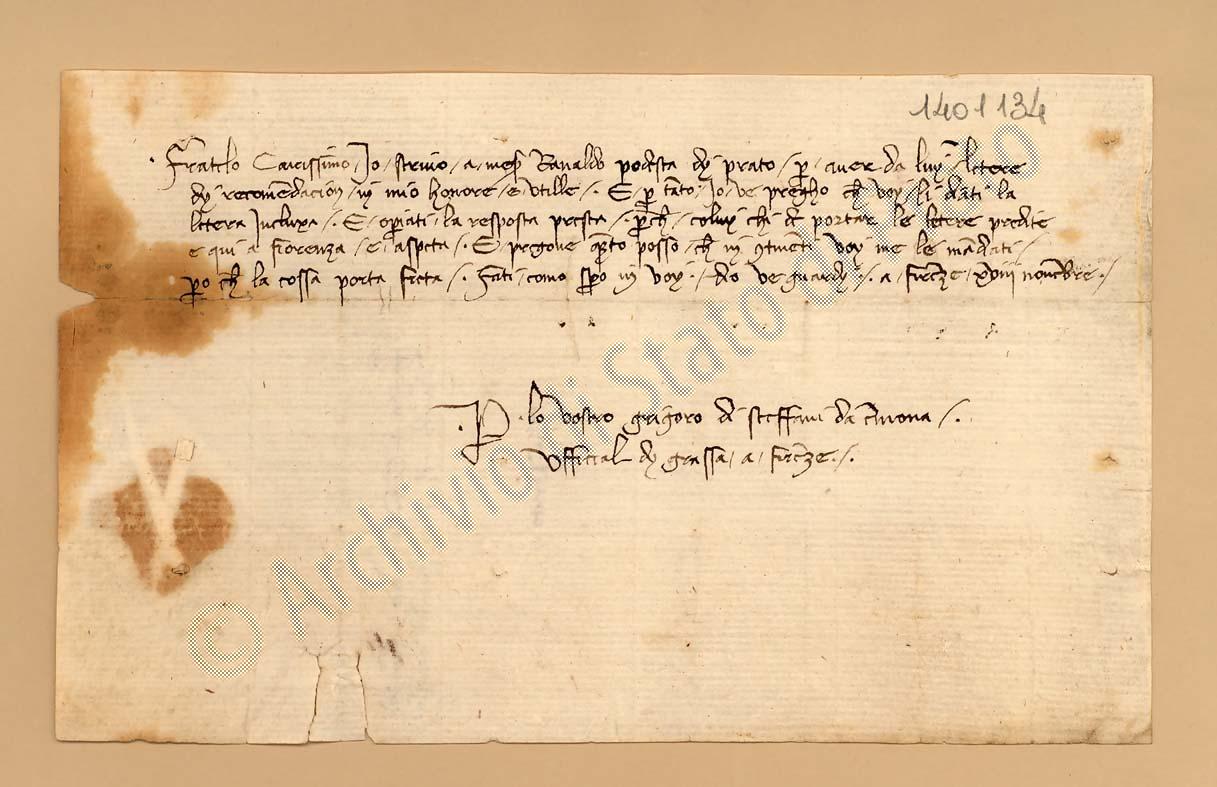 1401134
Fratelo Carissimo / Jo / scrivo / a / mes Ranaldo podesta dy prato / p aver da luy / letere
dy recomendacion / in mio honore / e utille / . E p tanto / Jo / ve pregho ch voy / li diati la
litera Incluxa / . E / operati / la resposta presta / . perch / colui chi de portar le letere predite
e qui a fiorenza / e l aspecta / . E pregove quanto posso / ch in voy me le mandati
pero ch la cossa porta freta / . Fati como spero in voy / . dio ve guardi / . a firenze / xviii novembre /
P lo vostro grigoro di steffani da cremona / .
Ufficial dy grassa / a / firenze . / .
© Archivio di Stato di Prato